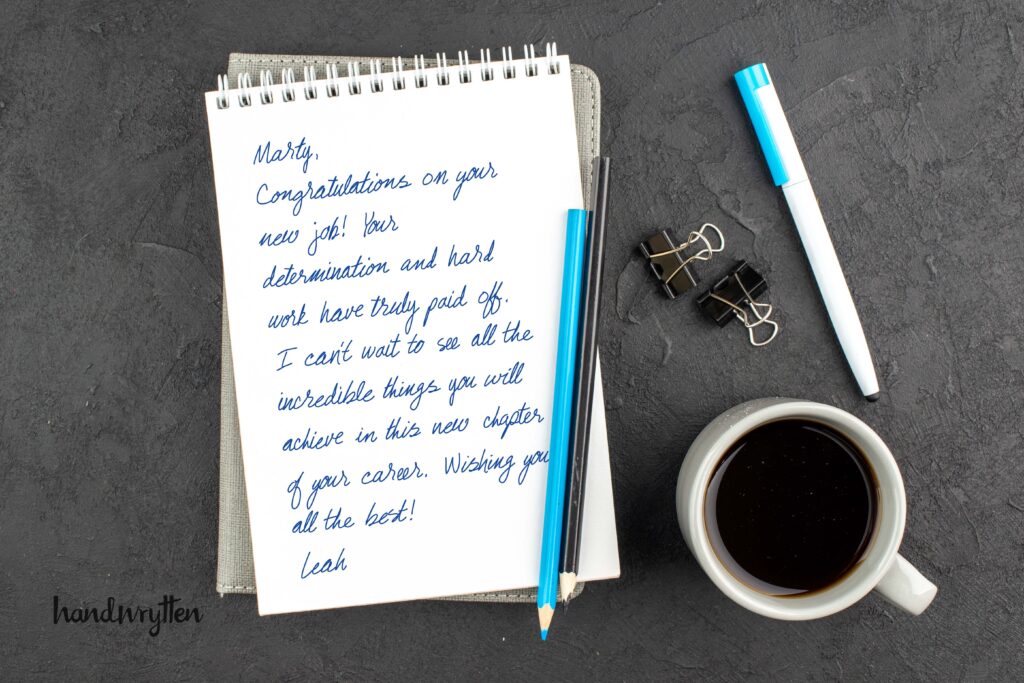 Marty,
Congratulations on your
new job! Your
determination and hard
work have truly paid off.
I can't wait to see all the
incredible things you will
achieve in this new chapter
of your career. Wishing you
all the best!
Leah
handwrytten